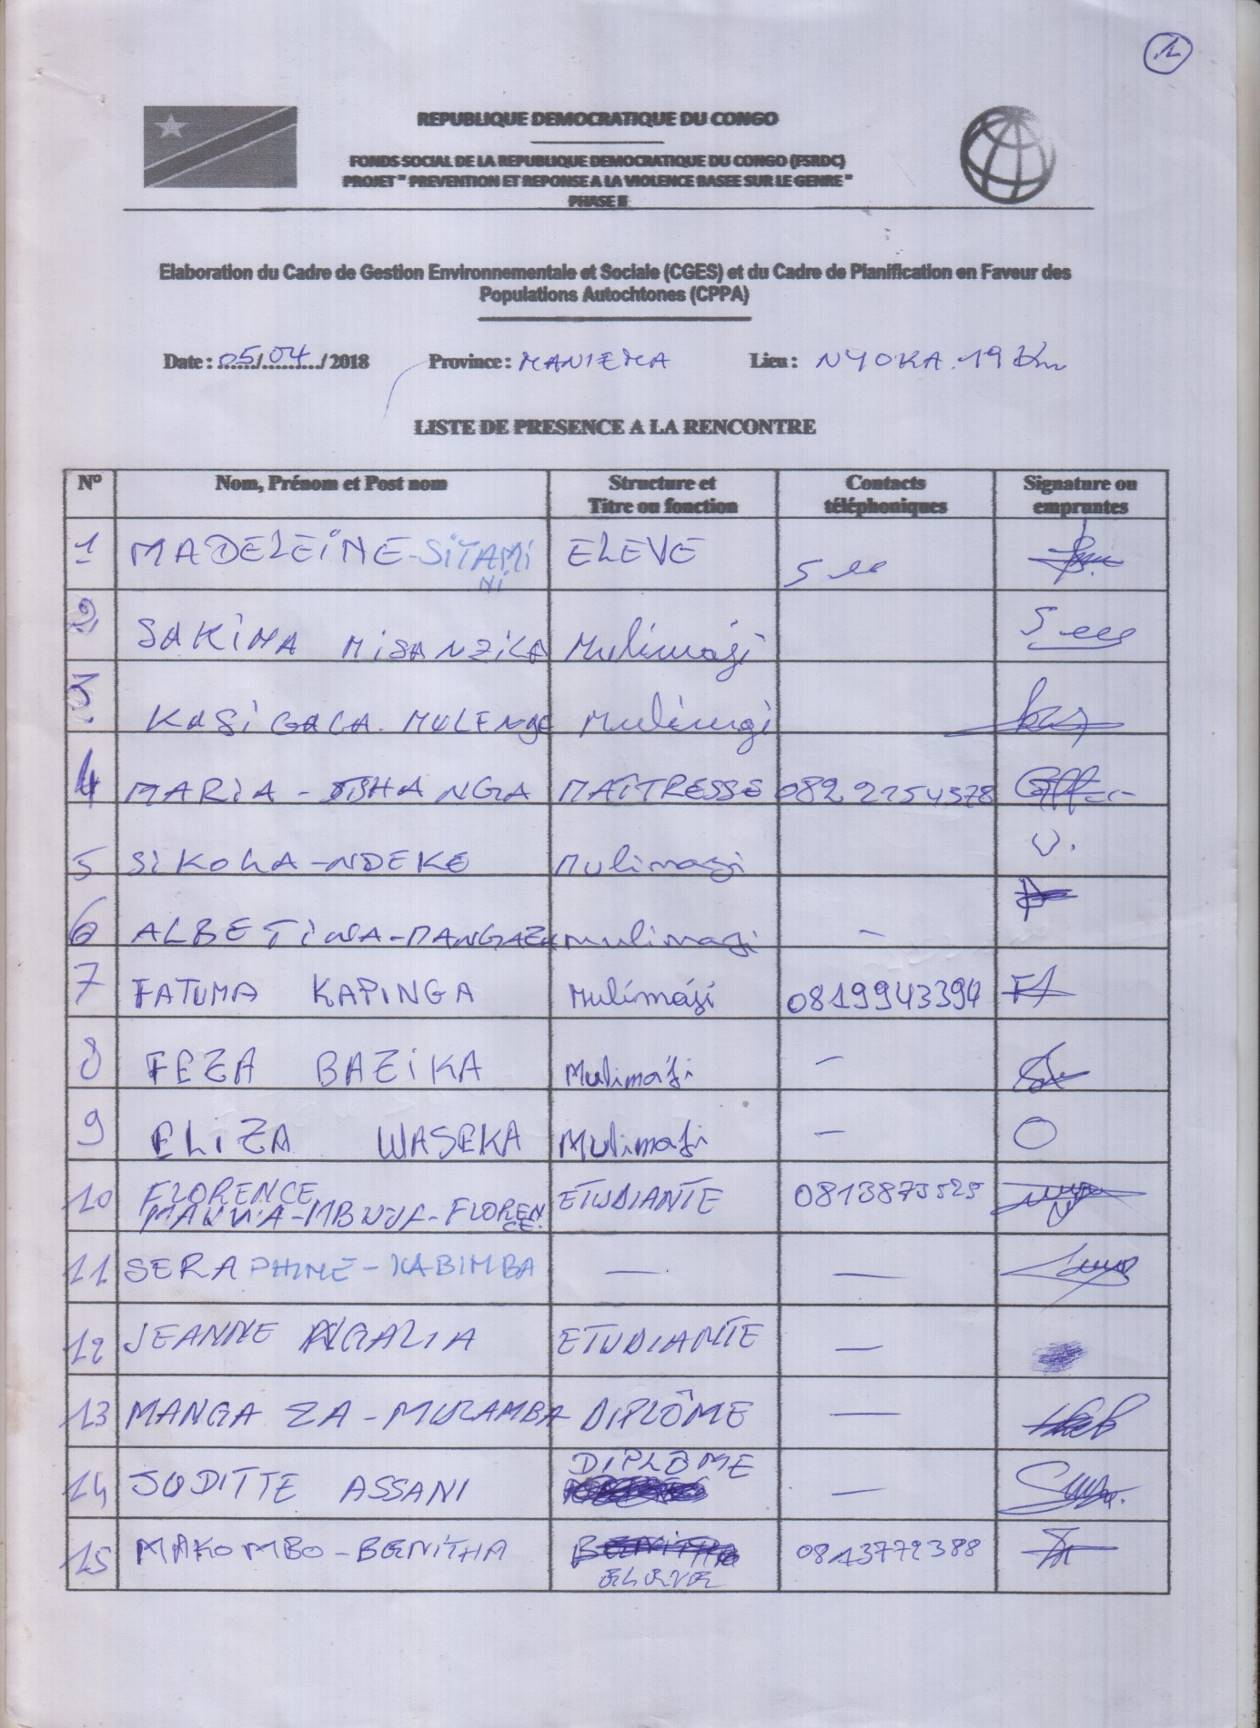 1
REPUBLIQUE DEMOCRATIQUE DU CONGO
FONDS SOCIAL DE LA REPUBLIQUE DEMOCRATIQUE DU CONGO (FSRDC)
PROJET " PREVENTION ET REPONSE A LA VIOLENCE BASEE SUR LE GENRE "
PHASE II
Elaboration du Cadre de Gestion Environnementale et Sociale (CGES) et du Cadre de Planification en Faveur des
Populations Autochtones (CPPA)
Date : 05/04/ 2018 Province : MANIEMA Lieu : NYOKA 19 Km
LISTE DE PRESENCE A LA RENCONTRE
N° Nom, Prénom et Post nom Structure et Titre ou fonction Contacts téléphoniques Signature ou empruntes
1 MADELEINE-SITAMINI ELEVE
2 SAKINA MISANZILA Mulimaji
3 KASIGALA. MULENGE Mulimaji
4 MARIA - TSHANGA MAITRESSE 0822254578
5 SIKOLA-NDEKE Mulimaji
6 ALBETINA-MANGAZA mulimaji -
7 FATUMA KAPINGA Mulimáji 0819943394 FA
8 FEZA BAZIKA Mulimaji -
9 ELIZA WASEKA Mulimaji -
10 FLORENCE ETUDIANTE 0813875525
FLORENCE.
11 SERAPHINE - KABIMBA - -
12 JEANNE NGALIA ETUDIANTE -
13 MANGAZA - MURAMBA DIPLÔME -
14 JODITTE ASSANI DIPLÔME -
15 MAKOMBO - BENITHA ELEVE 0813772388